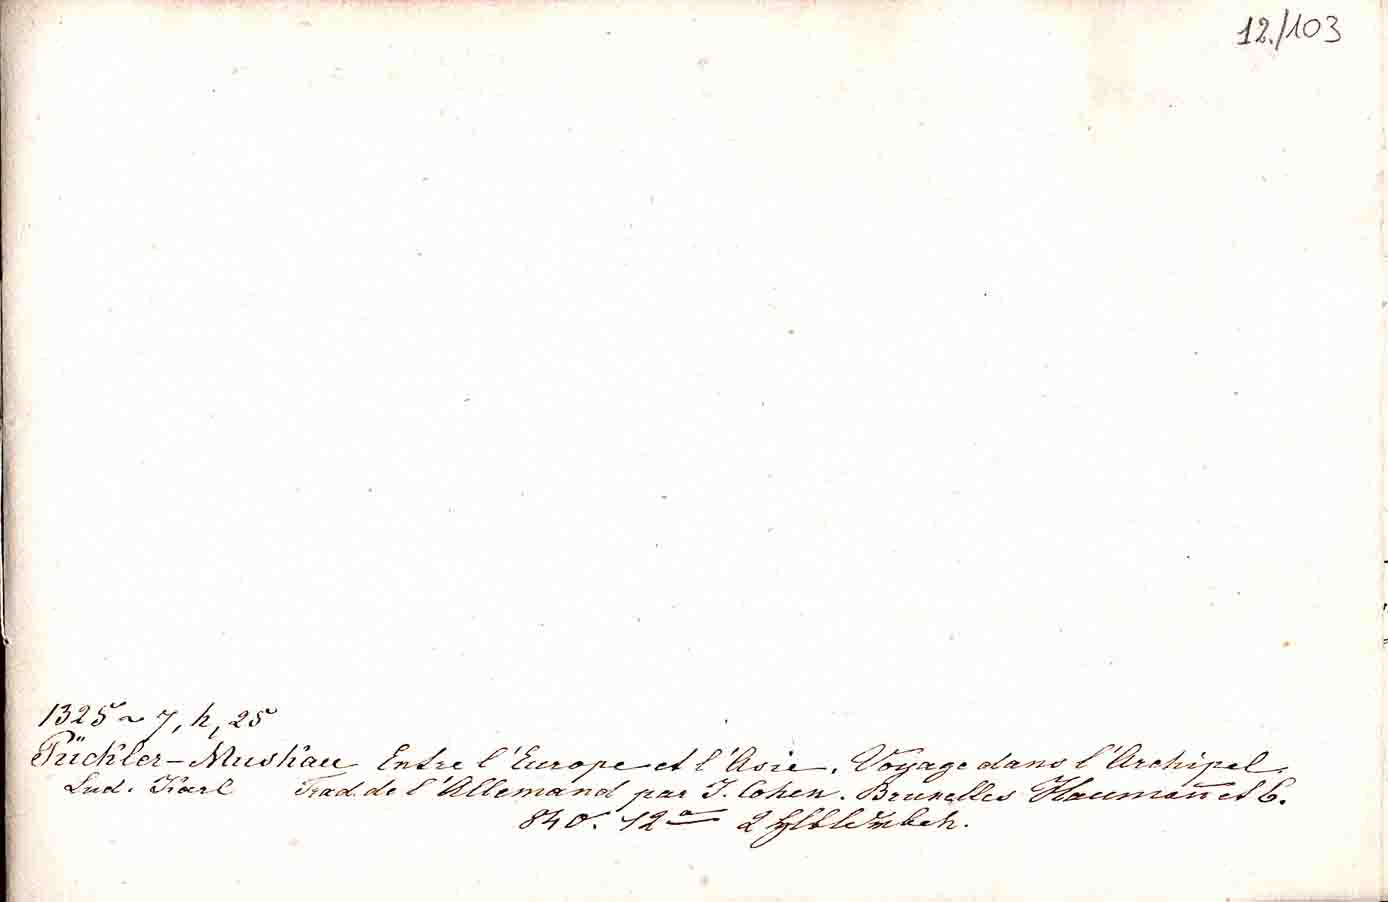 12./103
1325 ~ 7, h, 25
Pückler-Muskau Entre l'Europe et l'Asie. Voyage dans l'Archipel.
Lud. Karl Trad. de l'Allemand par J. Cohen. Bruxelles Haumañ et C.
840. 12° 2